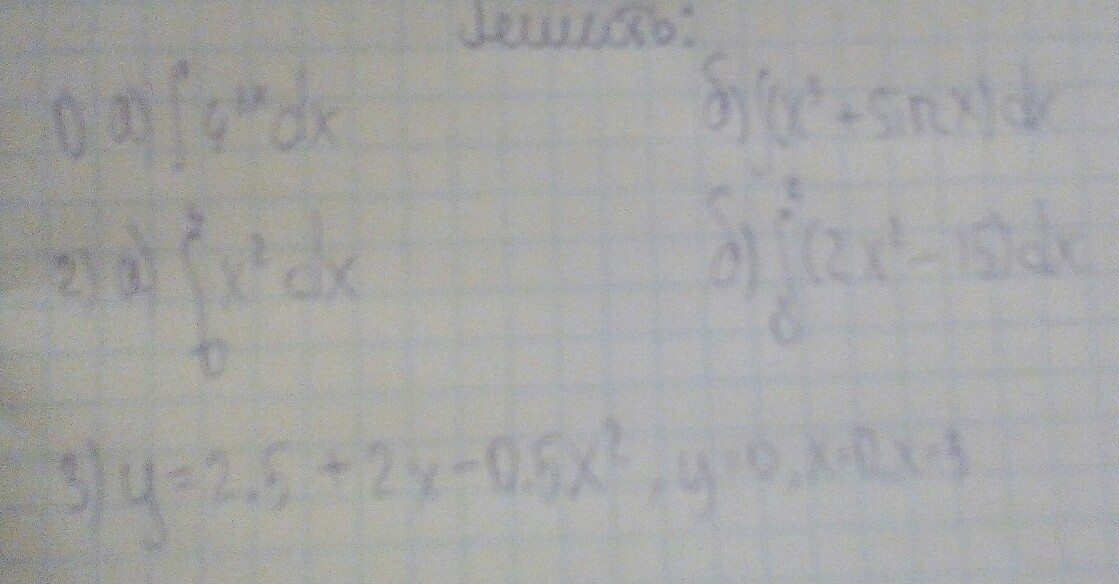 Решить:
1) а) ∫ dx б) ∫(x² + sin x) dx
2) а) ∫₀³ x² dx б) ∫₀² (2x² - 15) dx
3) y = 2.5 + 2x - 0.5x², y=0, x=0, x=